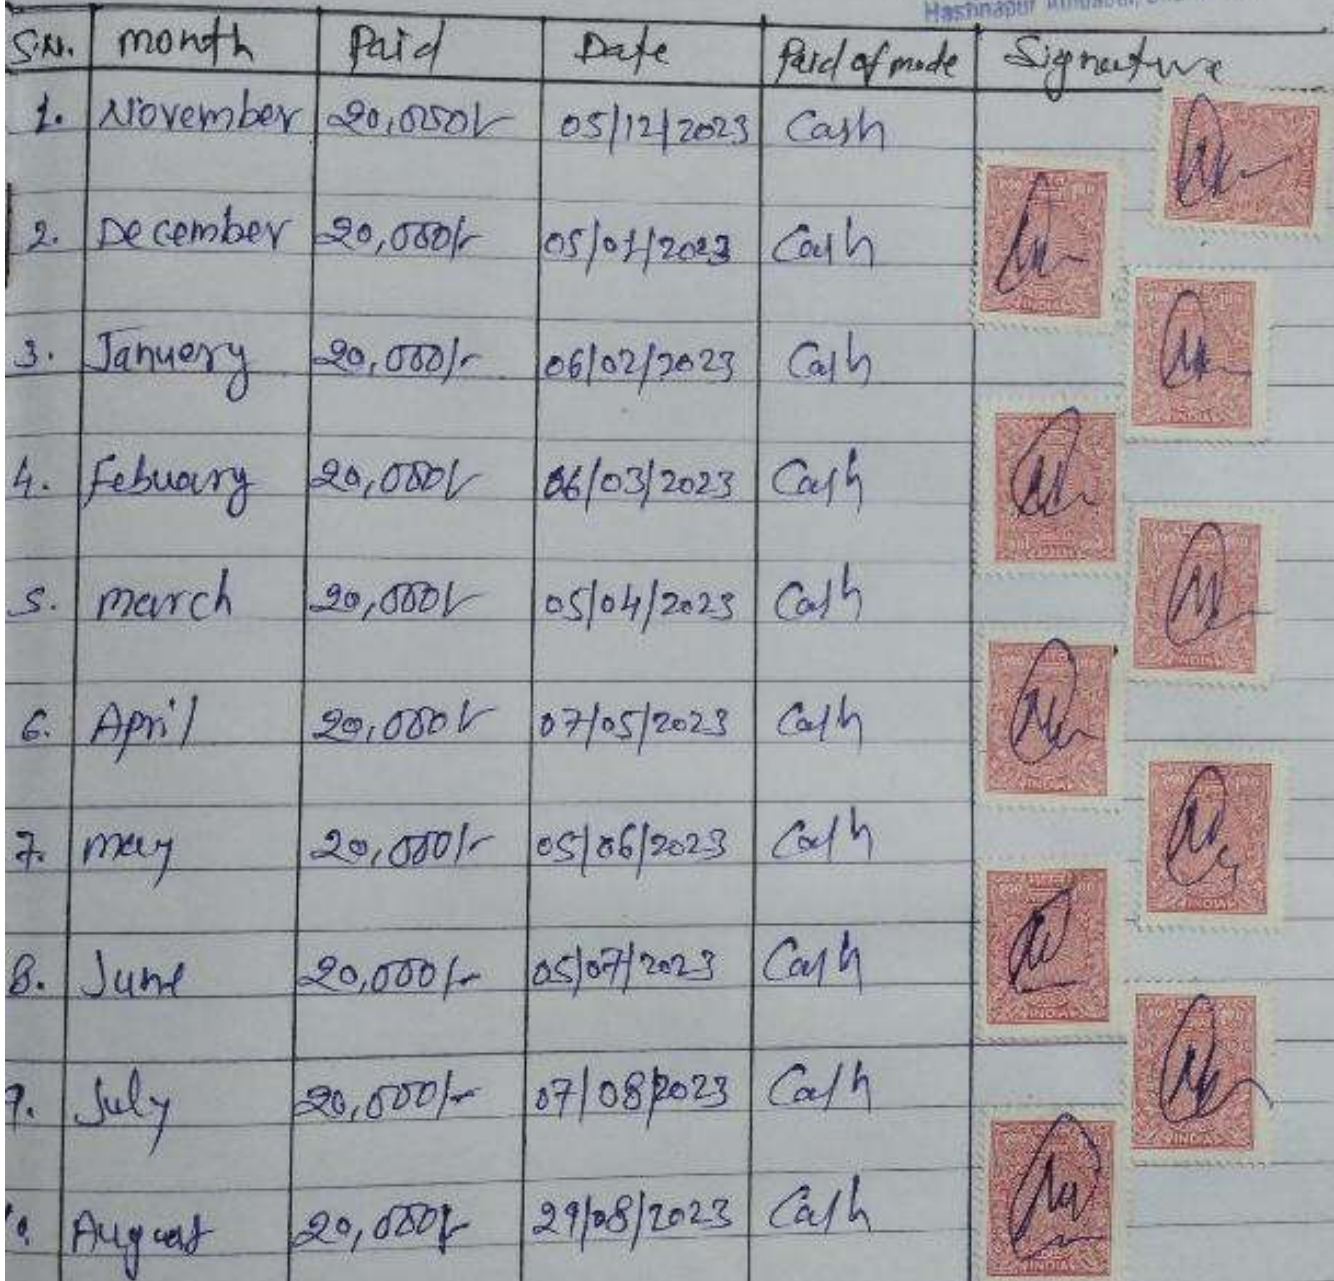 Hastinapur
S.N. month Paid Date Paid of mode Signature
1. November 20,000/- 05/12/2023 Cash
2. December 20,000/- 05/01/2023 Cash
3. Januery 20,000/- 06/02/2023 Cash
4. Febuary 20,000/- 06/03/2023 Cash
5. march 20,000/- 05/04/2023 Cash
6. April 20,000/- 07/05/2023 Cash
7. may 20,000/- 05/06/2023 Cash
8. June 20,000/- 05/07/2023 Cash
9. July 20,000/- 07/08/2023 Cash
August 20,000/- 29/08/2023 Cash
INDIA
INDIA
INDIA
INDIA
INDIA
INDIA
INDIA
INDIA